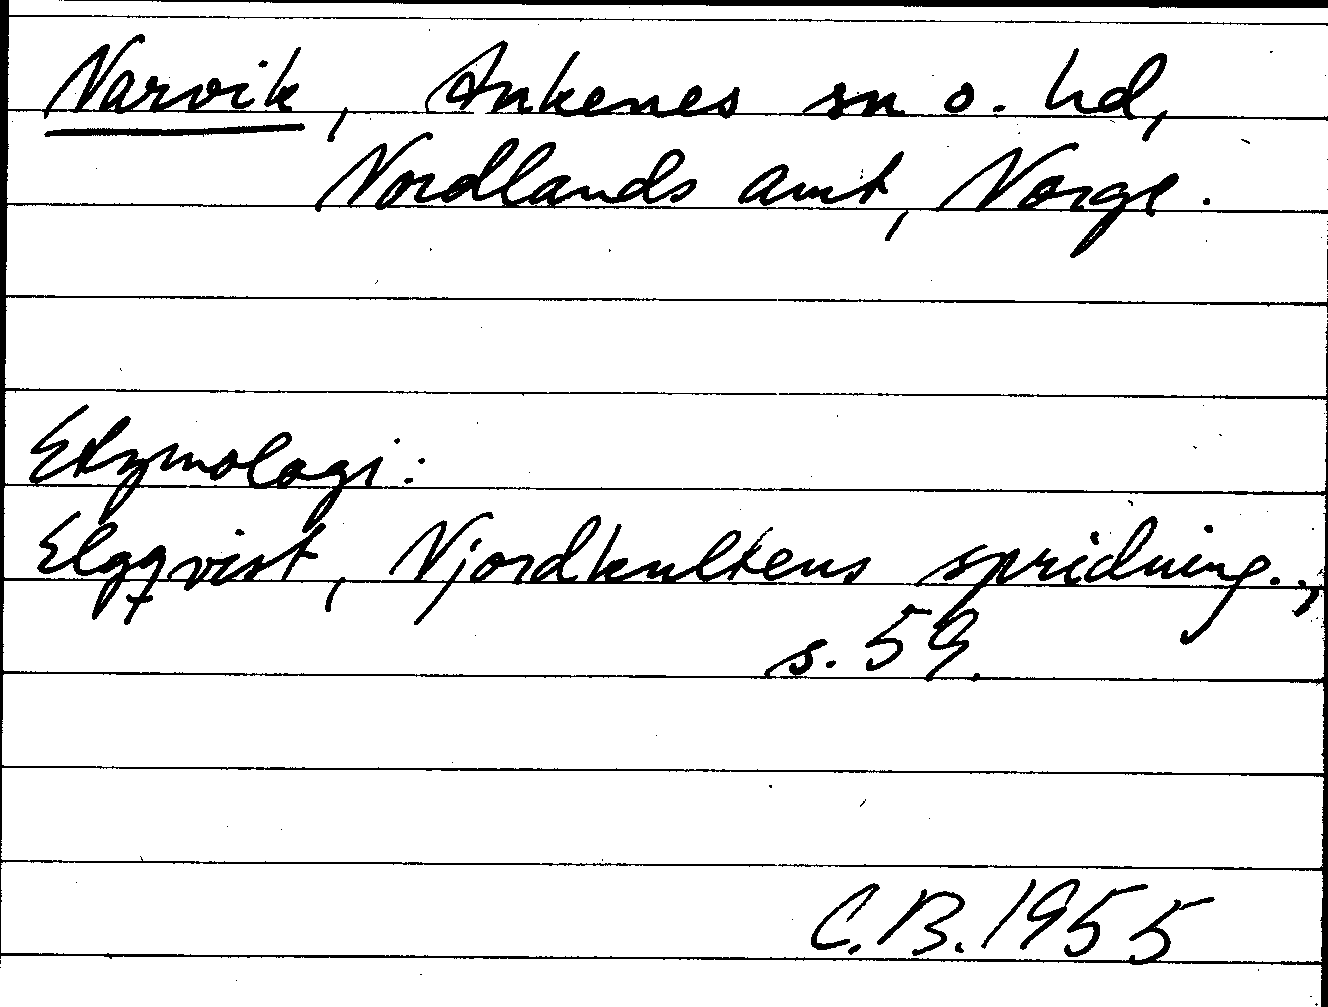 Narvik, Ankenes sn o. hd,
Nordlands amt, Norge.
Etymologi:
Elgqvist, Njordkultens spridning.,
s. 59.
C.B. 1955